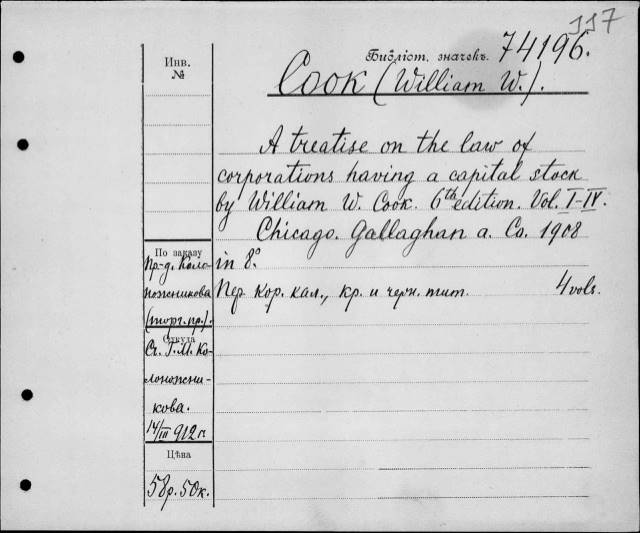 117
Библіот. значекъ. 74196.
Инв.
№
Cook (William W.).
A treatise on the law of
corporations having a capital stock
by William W. Cook. 6th edition. Vol. I-IV.
Chicago. Gallaghan a. Co. 1908
in 8.°
Пер. кор. кал., кр. и черн. тит. 4 vols.
По заказу
пр-д. Коло-
ножникова
(торг. пр.).
Откуда
Сч. Г. М. Ко-
лоножни-
кова.
14/III 912 г.
Цѣна
58 р. 50 к.